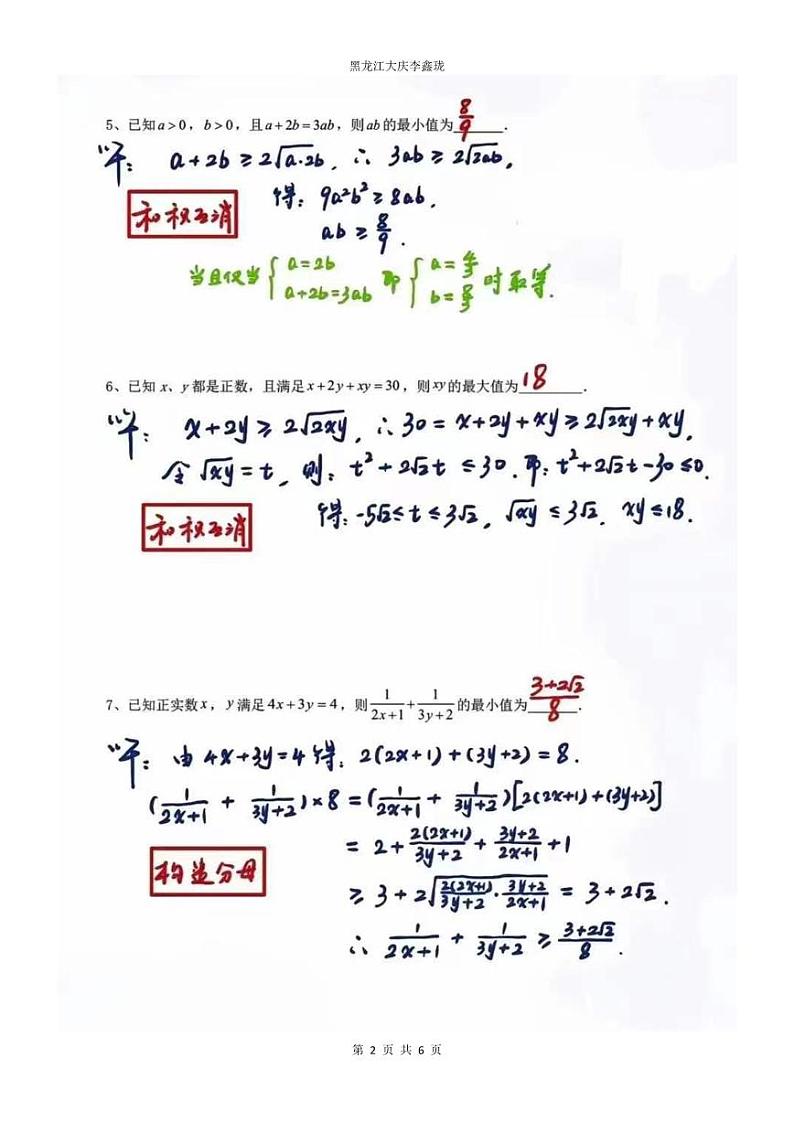 黑龙江大庆李鑫珑
5、已知a>0，b>0，且a+2b=3ab，则ab的最小值为 8/9 ．
a+2b≥2√(a·2b)，∴ 3ab≥2√(2ab)，
得：9a²b²≥8ab，
和积互消
ab≥8/9．
当且仅当{a=2b a+2b=3ab 即{a=4/3 b=2/3 时取等．
6、已知 x、y 都是正数，且满足x+2y+xy=30，则xy的最大值为 18 ．
x+2y≥2√(2xy)，∴30=x+2y+xy≥2√(2xy)+xy，
令√(xy)=t，则：t²+2√2t≤30．即：t²+2√2t-30≤0．
得：-5√2≤t≤3√2，√(xy)≤3√2．xy≤18．
和积互消
7、已知正实数x，y满足4x+3y=4，则1/(2x+1)+1/(3y+2)的最小值为 (3+2√2)/8 ．
由4x+3y=4得：2(2x+1)+(3y+2)=8．
(1/(2x+1) + 1/(3y+2))×8=(1/(2x+1) + 1/(3y+2))[2(2x+1)+(3y+2)]
=2+2(2x+1)/(3y+2)+(3y+2)/(2x+1)+1
构造分母
≥3+2√(2(2x+1)/(3y+2)·(3y+2)/(2x+1))=3+2√2．
∴ 1/(2x+1)+1/(3y+2)≥(3+2√2)/8．
第 2 页 共 6 页